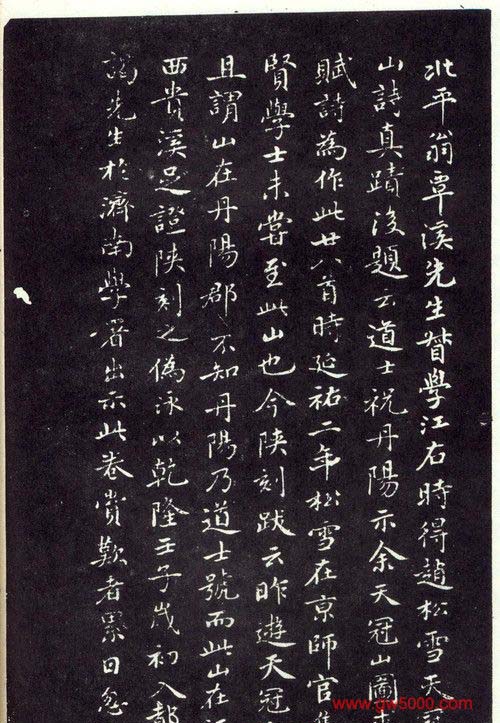 北平翁覃溪先生督學江右時得趙松雪天
山詩真蹟後題云道士祝丹陽示余天冠山圖
賦詩為作此廿八首時延祐二年松雪在京師官
賢學士未嘗至此山也今陝刻跋云昨遊天冠
且謂山在丹陽郡不知丹陽乃道士號而此山在
西貴溪足證陝刻之偽泳以乾隆壬子歲初入都
謁先生於濟南學署出示此卷賞歎者累日忽
www.gw5000.com